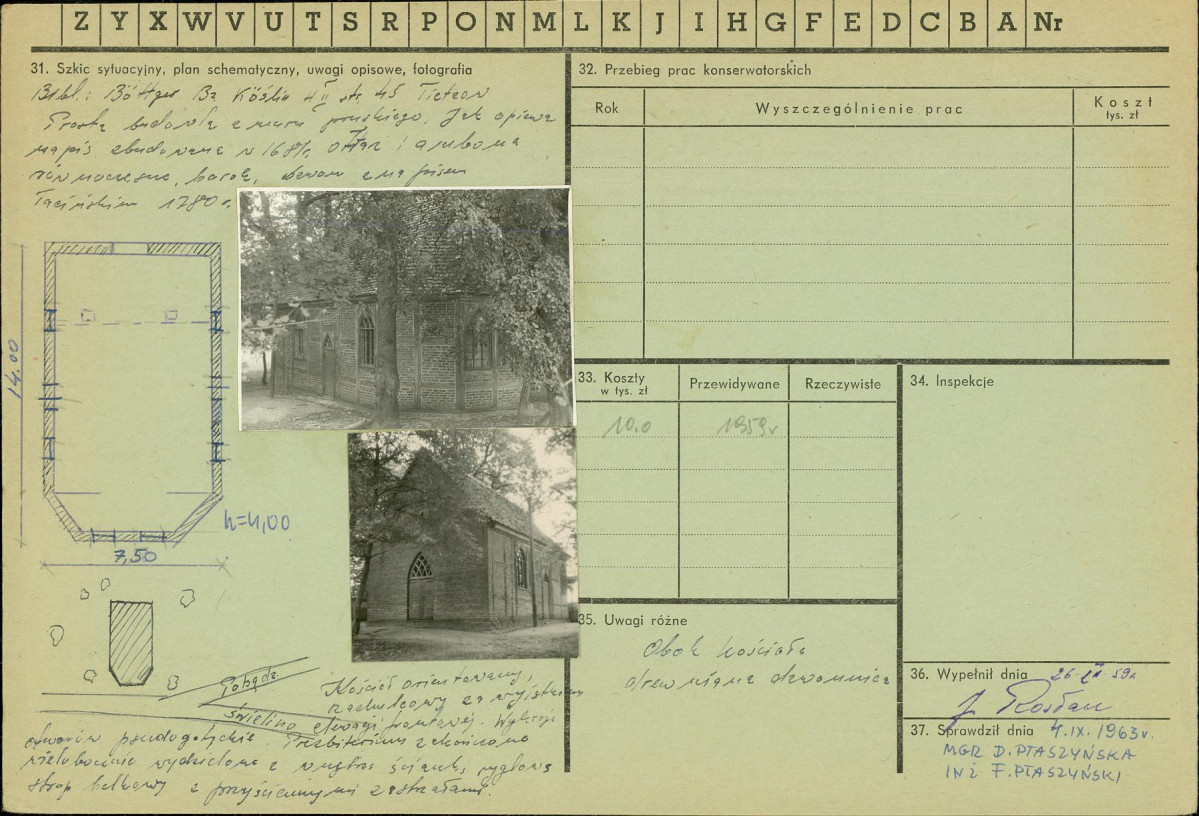 Z Y X W V U T S R P O N M L K J I H G F E D C B A Nr
31. Szkic sytuacyjny, plan schematyczny, uwagi opisowe, fotografia
Bibl.: Böttger Bz Köslin 4 II str. 45 Tietzow
Prosta budowla z muru pruskiego. Jak opiewa
napis zbudowana w 1681r. Ołtarz i ambona
równoczesne, barok, dzwon z napisem
łacińskim 1780 r.
14.00
h=4,00
7,50
Pobądz
Świelino
Kościół orientowany,
szachulcowy za wyjątkiem
elewacji frontowej. Wykroje
otworów pseudogotyckie. Prezbiterium zakończone
wielobocznie wydzielone z wnętrza ścianką ryglową
strop belkowy z przyściennymi zastrzałami.
32. Przebieg prac konserwatorskich
Rok Wyszczególnienie prac Koszt
tys. zł
33. Koszty
w tys. zł
Przewidywane Rzeczywiste
10.0 1959r
34. Inspekcje
35. Uwagi różne
Obok kościoła
drewniana dzwonnica
36. Wypełnił dnia 26 59r.
J. Rosłan
37. Sprawdził dnia 4.IX.1963r.
MGR D. PTASZYŃSKA
INŻ F. PTASZYŃSKI